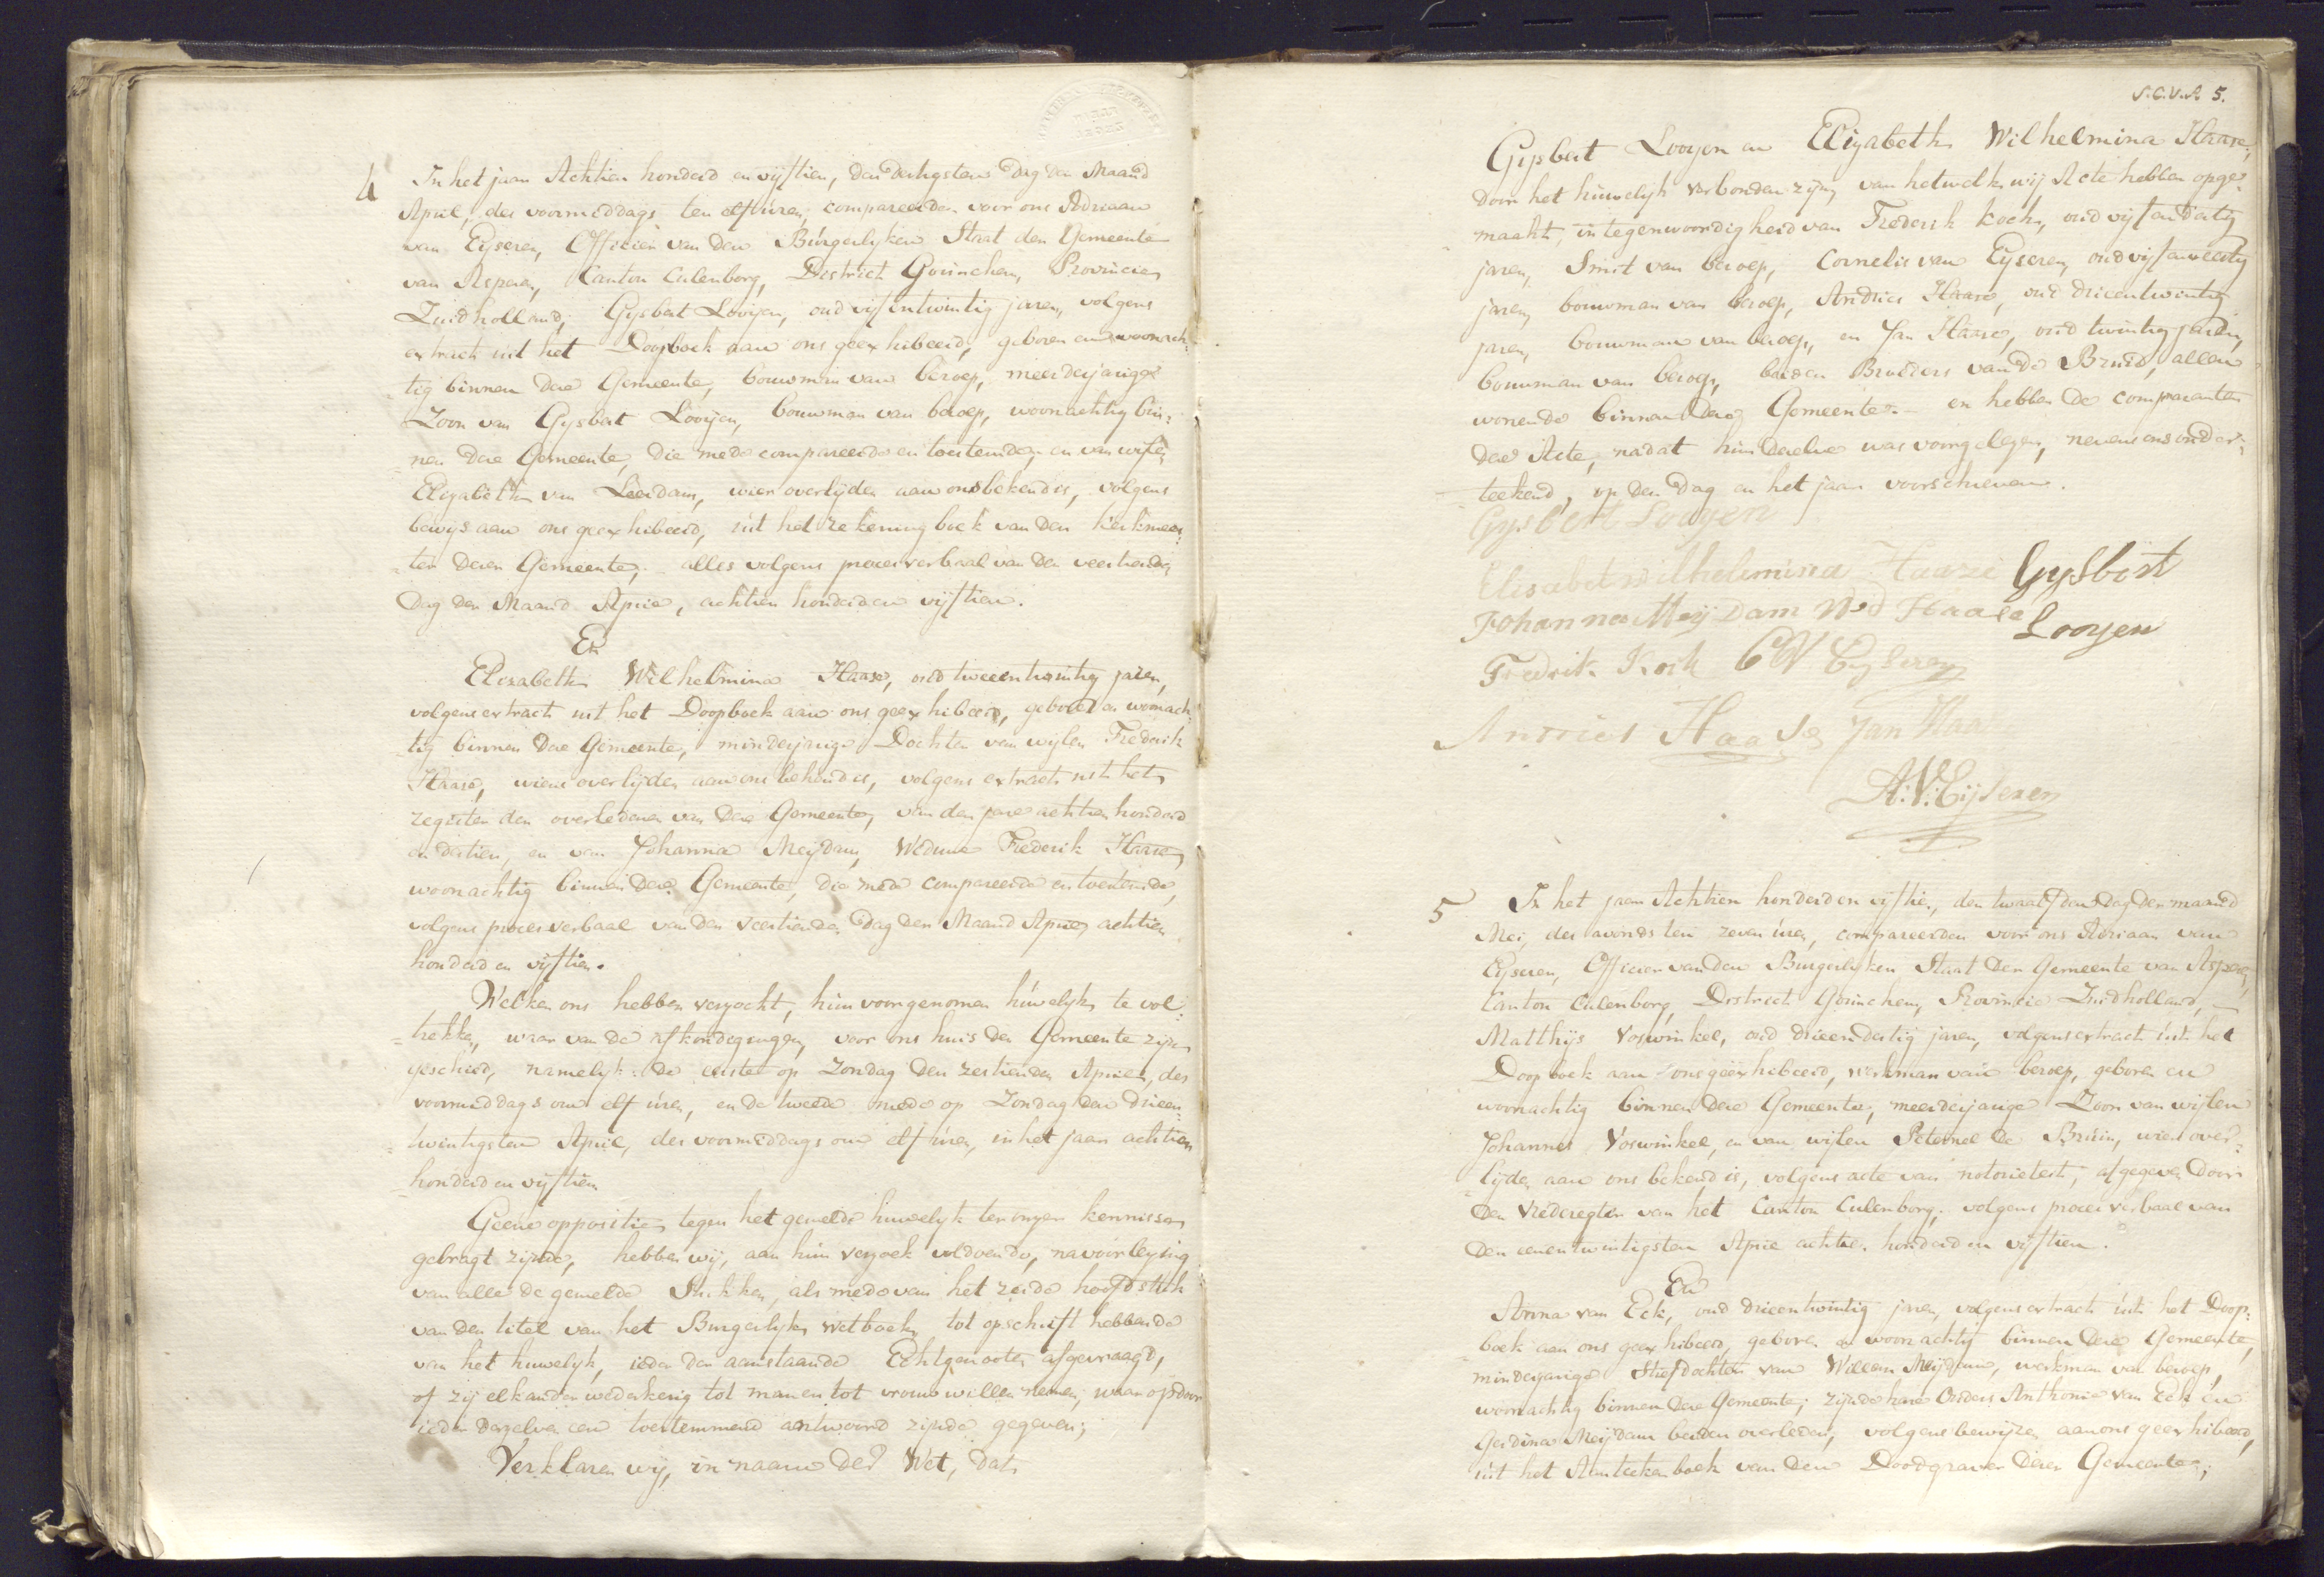 4
In het jaar Achtien honderd en vijftien, den dertigsten dag der Maand
April, des voormiddags ten elf uren, compareerden voor ons Adriaan
van Eijseren, Officier van den Burgerlyken Staat der Gemeente
van Asperen, Canton Culenborg, District Gorinchem, Provincie
Zuidholland, Gysbert Looijen, oud vijfentwintig jaren, volgens
extract uit het Doopboek aan ons geexhibeerd, geboren en woonach-
tig binnen deze Gemeente, bouwman van beroep, meerderjarige
Zoon van Gysbert Looijen, bouwman van beroep, woonachtig bin-
nen deze Gemeente, die mede compareerde en toestemde, en van wijlen
Elizabeth van Leerdam, wier overlijden aan ons bekend is, volgens
bewys aan ons geexhibeerd, uit het rekeningboek van den kerkmees-
ter dezer Gemeente, alles volgens procesverbaal van den veertienden
dag der Maand April, achtien honderd en vijftien.
En
Elizabeth Wilhelmina Haase, oud tweeentwintig jaren,
volgens extract uit het Doopboek aan ons geexhibeerd, geboren en woonach-
tig binnen deze Gemeente, minderjarige Dochter van wijlen Frederik
Haase, wiens overlijden aan ons bekend is, volgens extract uit het
register der overledenen van deze Gemeente, van den jare achtien honderd
en dertien, en van Johanna Meijdam, Weduwe Frederik Haase,
woonachtig binnen deze Gemeente, die mede compareerde en toestemde,
volgens procesverbaal van den veertienden dag der Maand April achtien
honderd en vijftien.
Welken ons hebben verzocht, hun voorgenomen huwelyk te vol-
trekken, waar van de afkondigingen, voor ons huis der Gemeente zijn
geschied, namelyk: de eerste op Zondag den zestienden April, des
voormiddags om elf uren, en de tweede mede op Zondag den drieen-
twintigsten April, des voormiddags om elf uren, in het jaar achtien
honderd en vijftien
Geene oppositie tegen het gemelde huwelyk ter onzer kennisse
gebragt zijnde, hebben wij, aan hun verzoek voldoende, na voorlezing
van alle de gemelde Stukken, als mede van het zesde hoofdstuk
van den titel van het Burgerlyk wetboek, tot opschrift hebbende
van het huwelyk, ieder der aanstaande Echtgenooten afgevraagd,
of zij elkander wederkerig tot man en tot vrouw willen nemen, waar op door
ieder derzelver een toestemmend antwoord zijnde gegeven;
Verklaren wij, in naam der Wet, dat
5.
Gysbert Looyen en Elizabeth Wilhelmina Haase,
door het huwelijk verbonden zijn, van hetwelk wij Acte hebben opge-
maakt, in tegenwoordigheid van Frederik Koch, oud vijfendertig
jaren, Smit van beroep, Cornelis van Eijseren, oud
jaren, bouwman van beroep, Andries Haase, oud drieentwintig
jaren, bouwman van beroep, en Jan Haase, oud twintig jaren,
bouwman van beroep, beiden Broeders van de Bruid, allen
wonende binnen deze Gemeente. - en hebben de comparanten
deze Acte, nadat hun dezelve was voorgelezen, nevens ons onder-
teekend, op den dag en het jaar voorschreven.
Gysbert Looyen
Elisabet wilhelmina Haase Gysbert
Johanna Meij Dam Wed Haase Looyen
Fredrik Koch C V Eyseren
Anries Haase Jan Haa
A: V: Eijseren
5
In het jaar Achtien honderd en vijftien, den twaalfden dag der maand
Mei, des avonds ten zeven uren, compareerden voor ons Adriaan van
Eijseren, Officier van den Burgerlyken Staat der Gemeente van Asperen,
Canton Culenborg, District Gorinchem, Provincie Zuidholland,
Matthijs Voswinkel, oud drieendertig jaren, volgens extract uit het
Doopboek aan ons geexhibeerd, werkman van beroep, geboren en
woonachtig binnen deze Gemeente, meerderjarige Zoon van wijlen
Johannes Voswinkel, en van wijlen Peternel de Bruin, wier over-
lijden aan ons bekend is, volgens acte van notorieteit, afgegeven door
den Vrederegter van het Canton Culenborg, volgens procesverbaal van
den eenentwintigsten April achtien honderd en vijftien.
En
Anna van Eck, oud drieentwintig jaren, volgens extract uit het Doop-
boek aan ons geexhibeerd, geboren en woonachtig binnen deze Gemeente,
minderjarige Stiefdochter van Willem Meijdam, werkman van beroep,
woonachtig binnen deze Gemeente; zijnde hare Ouders Anthonie van Eck en
Gerdina Meijdam beiden overleden, volgens bewijzen aan ons geexhibeerd,
uit het Aanteekenboek van den Doodgraver dezer Gemeente;